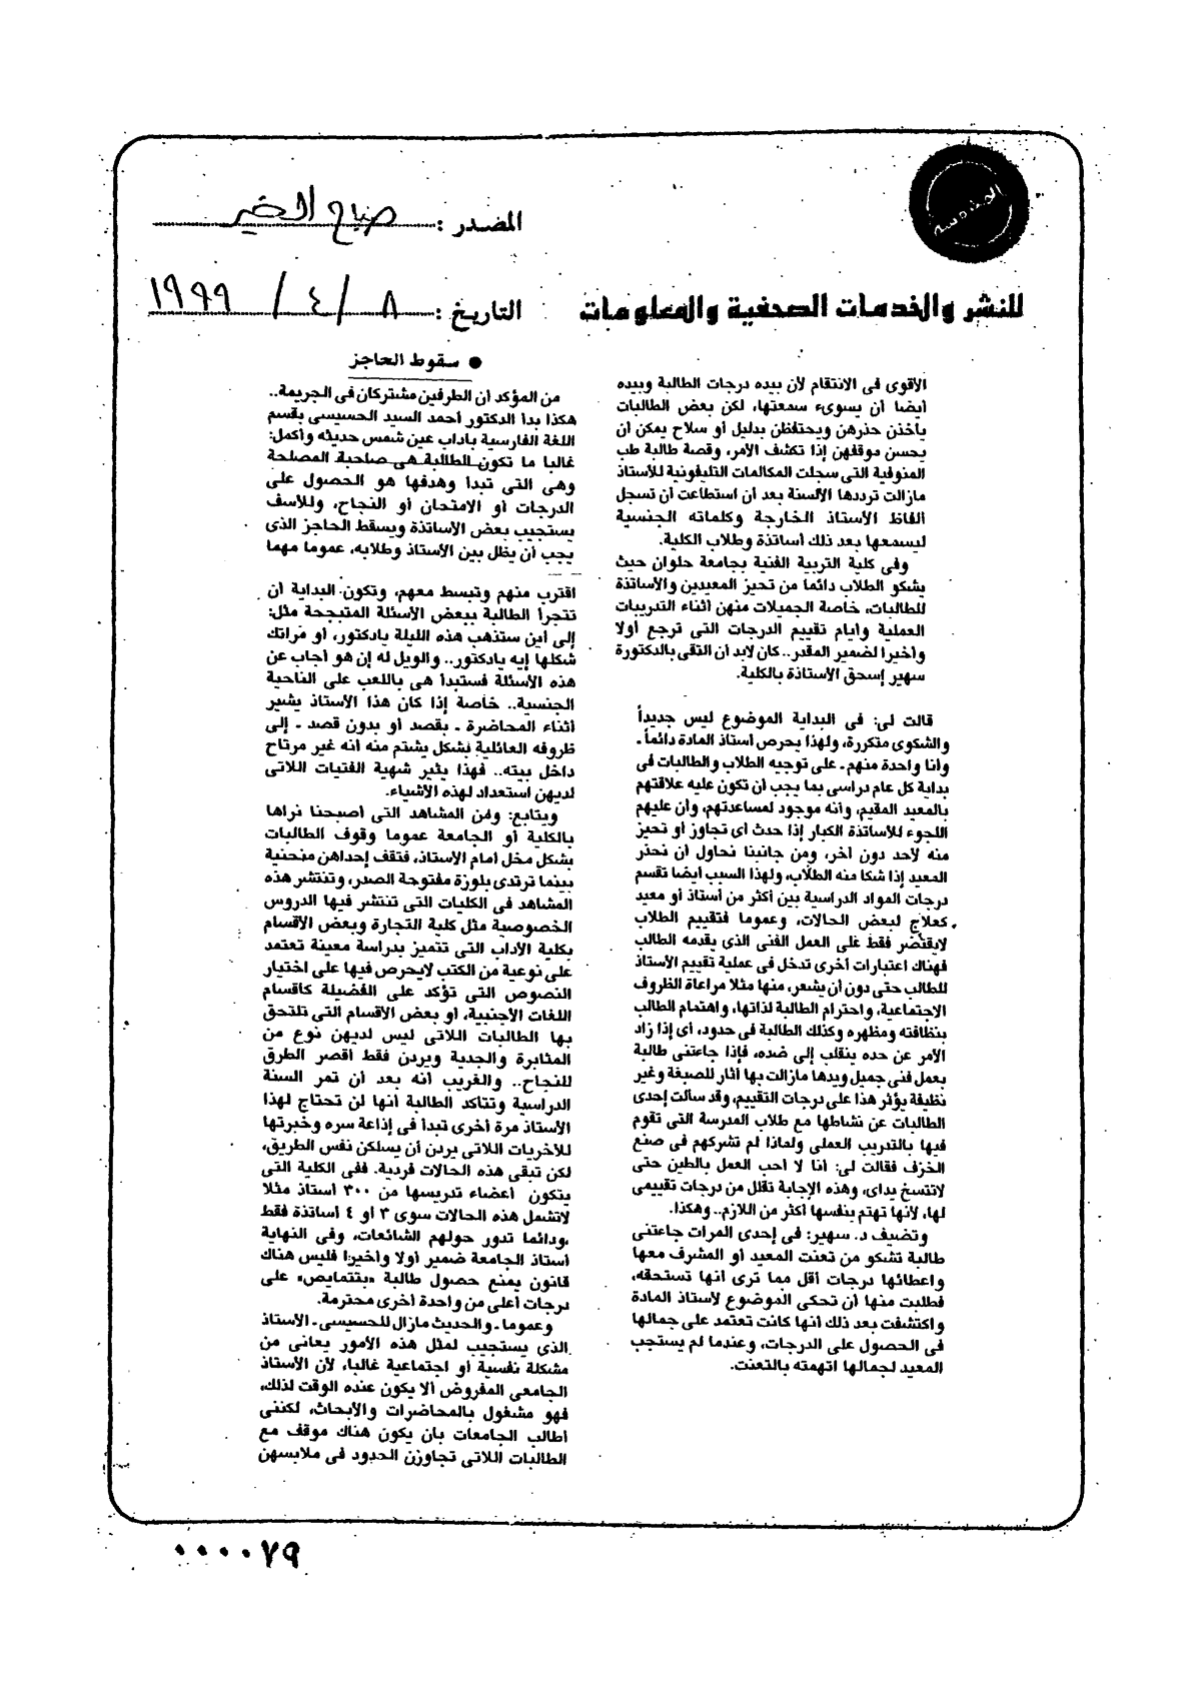 المصدر : صباح الخير
للنشر والخدمات الصحفية والمعلومات
التاريخ : ٨ / ٤ / ١٩٩٩
الأقوى فى الانتقام لأن بيده درجات الطالبة وبيده
أيضا أن يسوىء سمعتها، لكن بعض الطالبات
يأخذن حذرهن ويحتفظن بدليل أو سلاح يمكن أن
يحسن موقفهن إذا تكشف الأمر، وقصة طالبة طب
المنوفية التى سجلت المكالمات التليفونية للأستاذ
مازالت ترددها الألسنة بعد أن استطاعت أن تسجل
ألفاظ الأستاذ الخارجة وكلماته الجنسية
ليسمعها بعد ذلك أساتذة وطلاب الكلية.
وفى كلية التربية الفنية بجامعة حلوان حيث
يشكو الطلاب دائما من تحيز المعيدين والأساتذة
للطالبات، خاصة الجميلات منهن أثناء التدريبات
العملية وأيام تقييم الدرجات التى ترجع أولا
وأخيرا لضمير المقدر.. كان لابد أن التقى بالدكتورة
سهير إسحق الأستاذة بالكلية.
قالت لى: فى البداية الموضوع ليس جديداً
والشكوى متكررة، ولهذا يحرص أستاذ المادة دائماً ـ
وأنا واحدة منهم ـ على توجيه الطلاب والطالبات فى
بداية كل عام دراسى بما يجب أن تكون عليه علاقتهم
بالمعيد المقيم، وأنه موجود لمساعدتهم، وأن عليهم
اللجوء للأساتذة الكبار إذا حدث أى تجاوز أو تحيز
منه لأحد دون آخر، ومن جانبنا نحاول أن نحذر
المعيد إذا شكا منه الطلاب، ولهذا السبب أيضا تقسم
درجات المواد الدراسية بين أكثر من أستاذ أو معيد
كعلاج لبعض الحالات، وعموما فتقييم الطلاب
لايقتصر فقط على العمل الفنى الذى يقدمه الطالب
فهناك اعتبارات أخرى تدخل فى عملية تقييم الأستاذ
للطالب حتى دون أن يشعر، منها مثلا مراعاة الظروف
الاجتماعية، واحترام الطالبة لذاتها، واهتمام الطالب
بنظافته ومظهره وكذلك الطالبة فى حدود، أى إذا زاد
الأمر عن حده ينقلب إلى ضده، فإذا جاءتنى طالبة
بعمل فنى جميل ويدها مازالت بها آثار للصبغة وغير
نظيفة يؤثر هذا على درجات التقييم، وقد سألت إحدى
الطالبات عن نشاطها مع طلاب المدرسة التى تقوم
فيها بالتدريب العملى ولماذا لم تشركهم فى صنع
الخزف فقالت لى: أنا لا أحب العمل بالطين حتى
لاتتسخ يداى، وهذه الإجابة تقلل من درجات تقييمى
لها، لأنها تهتم بنفسها أكثر من اللازم.. وهكذا.
وتضيف د. سهير: فى إحدى المرات جاءتنى
طالبة تشكو من تعنت المعيد أو المشرف معها
وإعطائها درجات أقل مما ترى أنها تستحقه،
فطلبت منها أن تحكى الموضوع لأستاذ المادة
واكتشفت بعد ذلك أنها كانت تعتمد على جمالها
فى الحصول على الدرجات، وعندما لم يستجب
المعيد لجمالها اتهمته بالتعنت.
● سقوط الحاجز
من المؤكد أن الطرفين مشتركان فى الجريمة..
هكذا بدأ الدكتور أحمد السيد الحسيسى بقسم
اللغة الفارسية بآداب عين شمس حديثه وأكمل:
غالبا ما تكون الطالبة هى صاحبة المصلحة
وهى التى تبدأ وهدفها هو الحصول على
الدرجات أو الامتحان أو النجاح، وللأسف
يستجيب بعض الأساتذة ويسقط الحاجز الذى
يجب أن يظل بين الأستاذ وطلابه، عموما مهما
اقترب منهم وتبسط معهم، وتكون البداية أن
تتجرأ الطالبة ببعض الأسئلة المتبجحة مثل:
إلى أين ستذهب هذه الليلة يادكتور، أو مراتك
شكلها إيه يادكتور.. والويل له إن هو أجاب عن
هذه الأسئلة فستبدأ هى باللعب على الناحية
الجنسية.. خاصة إذا كان هذا الأستاذ يشير
أثناء المحاضرة ـ بقصد أو بدون قصد ـ إلى
ظروفه العائلية بشكل يشتم منه أنه غير مرتاح
داخل بيته.. فهذا يثير شهية الفتيات اللاتى
لديهن استعداد لهذه الأشياء.
ويتابع: ومن المشاهد التى أصبحنا نراها
بالكلية أو الجامعة عموما وقوف الطالبات
بشكل مخل أمام الأستاذ، فتقف إحداهن منحنية
بينما ترتدى بلوزة مفتوحة الصدر، وتنتشر هذه
المشاهد فى الكليات التى تنتشر فيها الدروس
الخصوصية مثل كلية التجارة وبعض الأقسام
بكلية الآداب التى تتميز بدراسة معينة تعتمد
على نوعية من الكتب لايحرص فيها على اختيار
النصوص التى تؤكد على الفضيلة كأقسام
اللغات الأجنبية، أو بعض الأقسام التى تلتحق
بها الطالبات اللاتى ليس لديهن نوع من
المثابرة والجدية ويردن فقط أقصر الطرق
للنجاح.. والغريب أنه بعد أن تمر السنة
الدراسية وتتأكد الطالبة أنها لن تحتاج لهذا
الأستاذ مرة أخرى تبدأ فى إذاعة سره وخبرتها
للأخريات اللاتى يردن أن يسلكن نفس الطريق،
لكن تبقى هذه الحالات فردية. ففى الكلية التى
يتكون أعضاء تدريسها من ٣٠٠ أستاذ مثلا
لاتشمل هذه الحالات سوى ٣ أو ٤ أساتذة فقط
ودائما تدور حولهم الشائعات، وفى النهاية
أستاذ الجامعة ضمير أولا وأخيرا فليس هناك
قانون يمنع حصول طالبة «بتتمايص» على
درجات أعلى من واحدة أخرى محترمة.
وعموما ـ والحديث مازال للحسيسى ـ الأستاذ
الذى يستجيب لمثل هذه الأمور يعانى من
مشكلة نفسية أو اجتماعية غالبا، لأن الأستاذ
الجامعى المفروض ألا يكون عنده الوقت لذلك،
فهو مشغول بالمحاضرات والأبحاث، لكننى
أطالب الجامعات بأن يكون هناك موقف مع
الطالبات اللاتى تجاوزن الحدود فى ملابسهن
٠٠٠٠٧٩